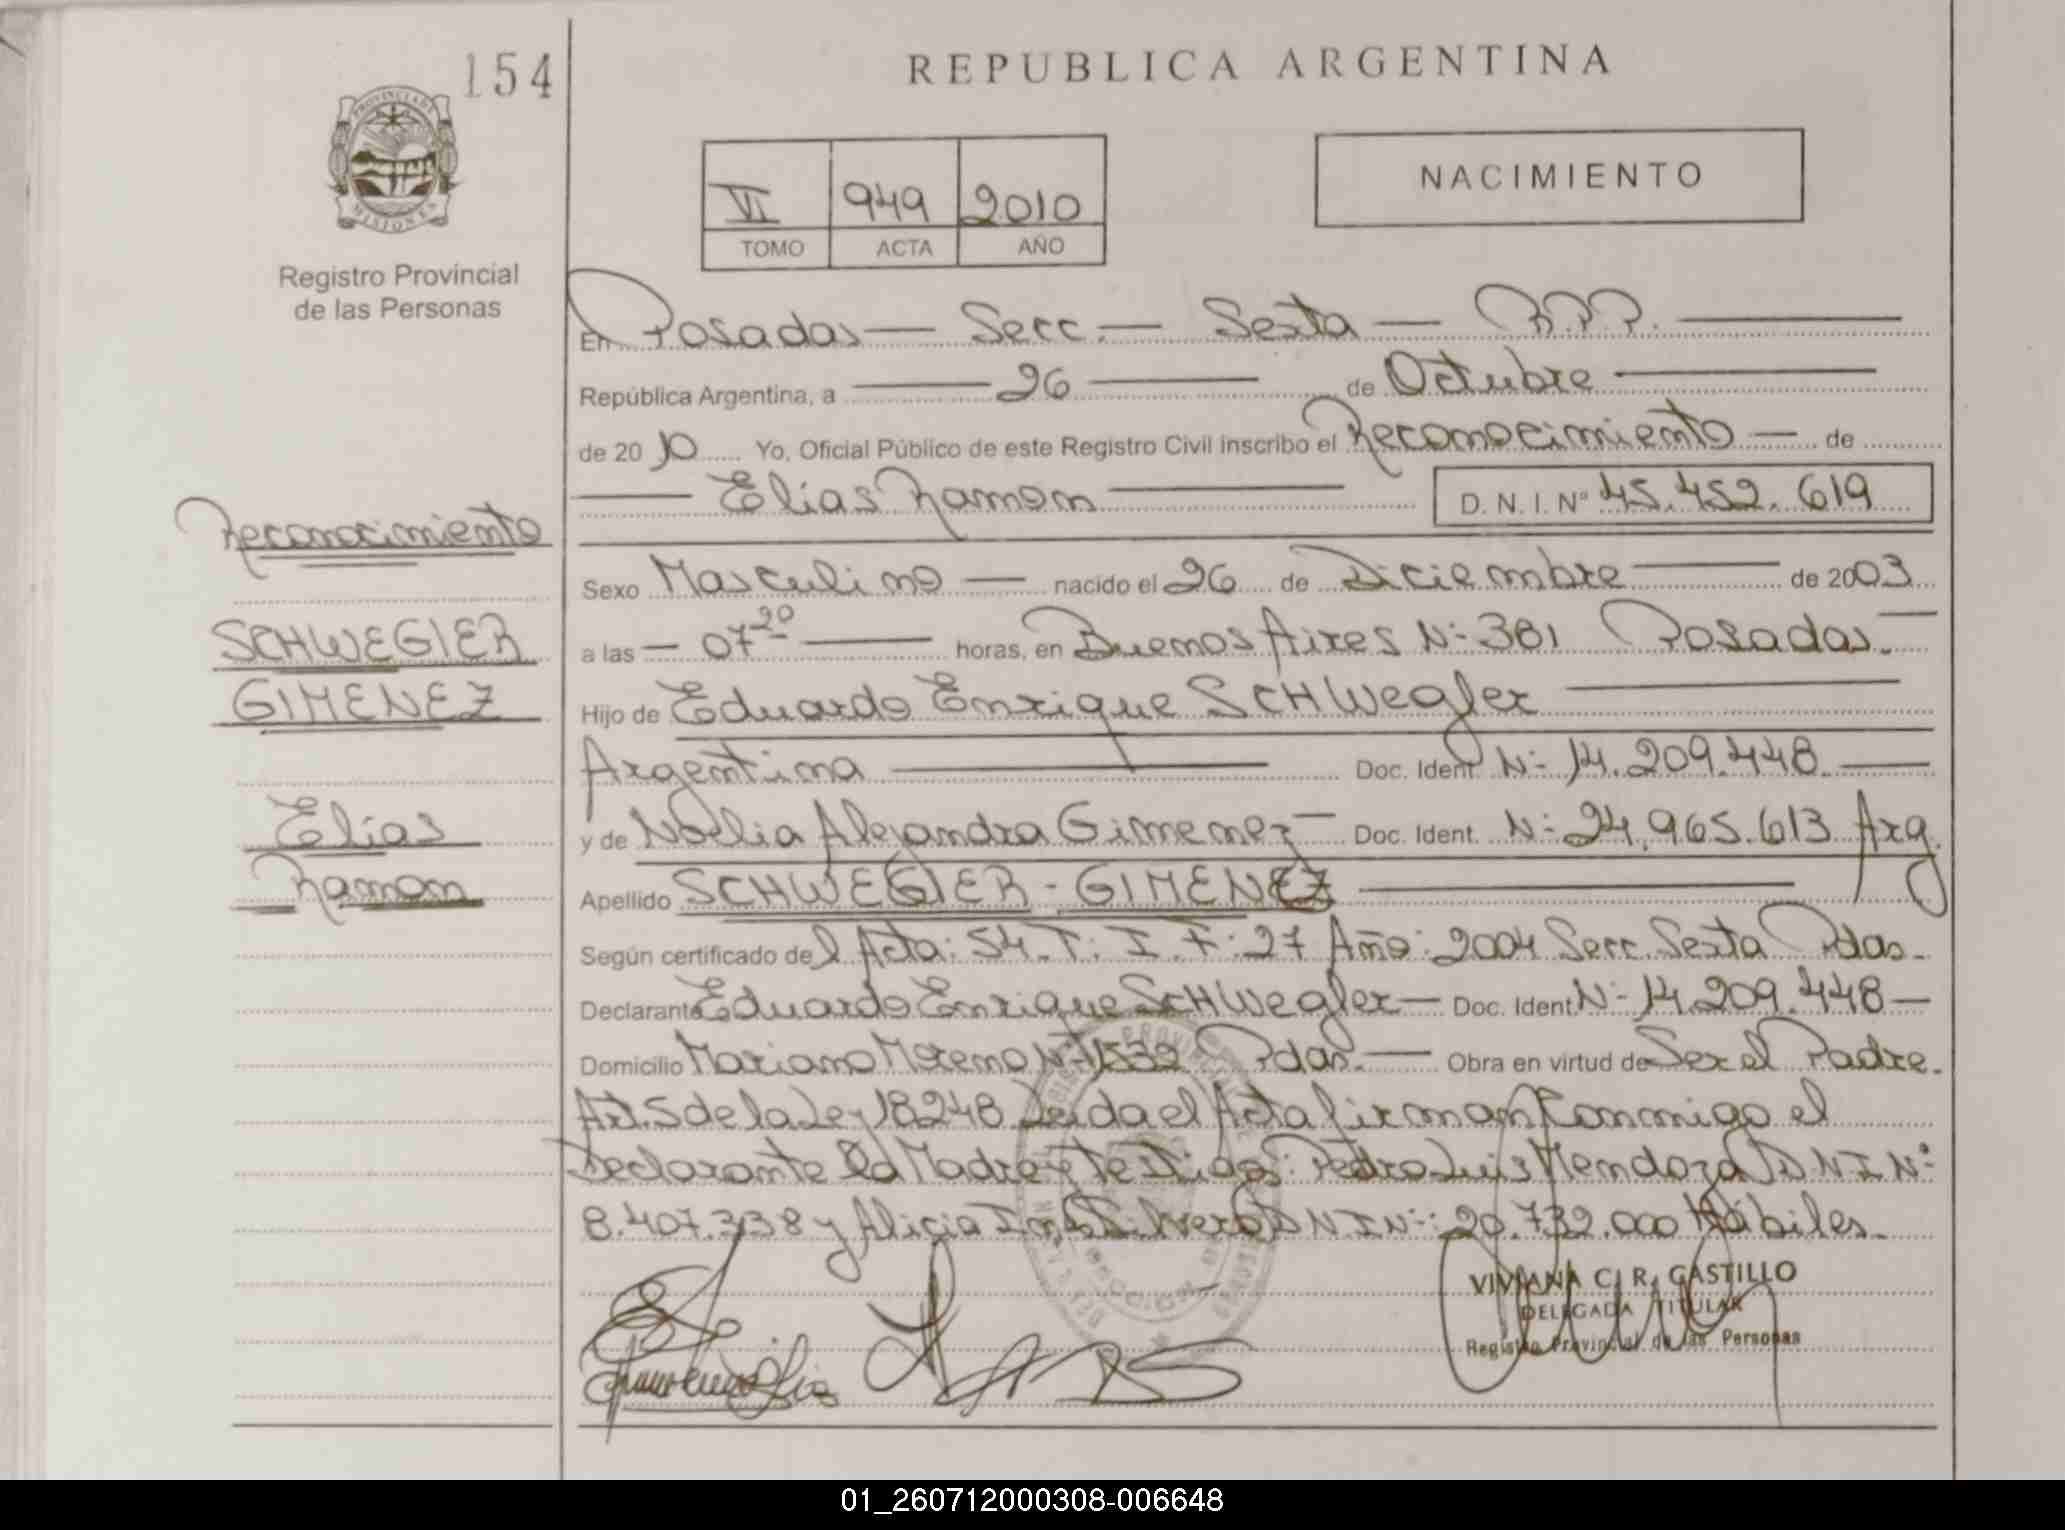 154
REPUBLICA ARGENTINA
PROVINCIA DE
MISIONES
Registro Provincial
de las Personas
VI 949 2010
TOMO ACTA AÑO
NACIMIENTO
En Posadas — Secc. — Sexta — R.P.P.
República Argentina, a — 26 — de Octubre —
de 2010 Yo, Oficial Público de este Registro Civil inscribo el Reconocimiento — de
— Elias Ramon — D. N. I. Nº 45.452.619
Reconocimiento
Sexo Masculino — nacido el 26 de Diciembre — de 2003
SCHWEGLER
a las — 07 20 — horas, en Buenos Aires Nº 381 Posadas.—
GIMENEZ
Hijo de Eduardo Enrique SCHWegler —
Argentina — Doc. Ident Nº 14.209.448.—
Elias
y de Noelia Alejandra Gimenez — Doc. Ident. Nº 24.965.613 Arg.
Ramon
Apellido SCHWEGLER - GIMENEZ —
Según certificado del Acta: 54. T: I. F: 27 Año: 2004 Secc. Sexta Pdas.
Declarante Eduardo Enrique SCHWegler — Doc. Ident. Nº 14.209.448 —
Domicilio Mariano Moreno Nº 1532 Pdas. — Obra en virtud de Ser el Padre.
Art. 5 de la Ley 18248 Leida el Acta firman Conmigo el
Declarante la Madre y Testigos: Pedro Luis Mendoza D N I Nº
8.407.338 y Alicia Silvero D N I Nº: 20.732.000 Hábiles.
VIVIANA C. R. CASTILLO
DELEGADA TITULAR
Registro Provincial de las Personas
01_260712000308-006648